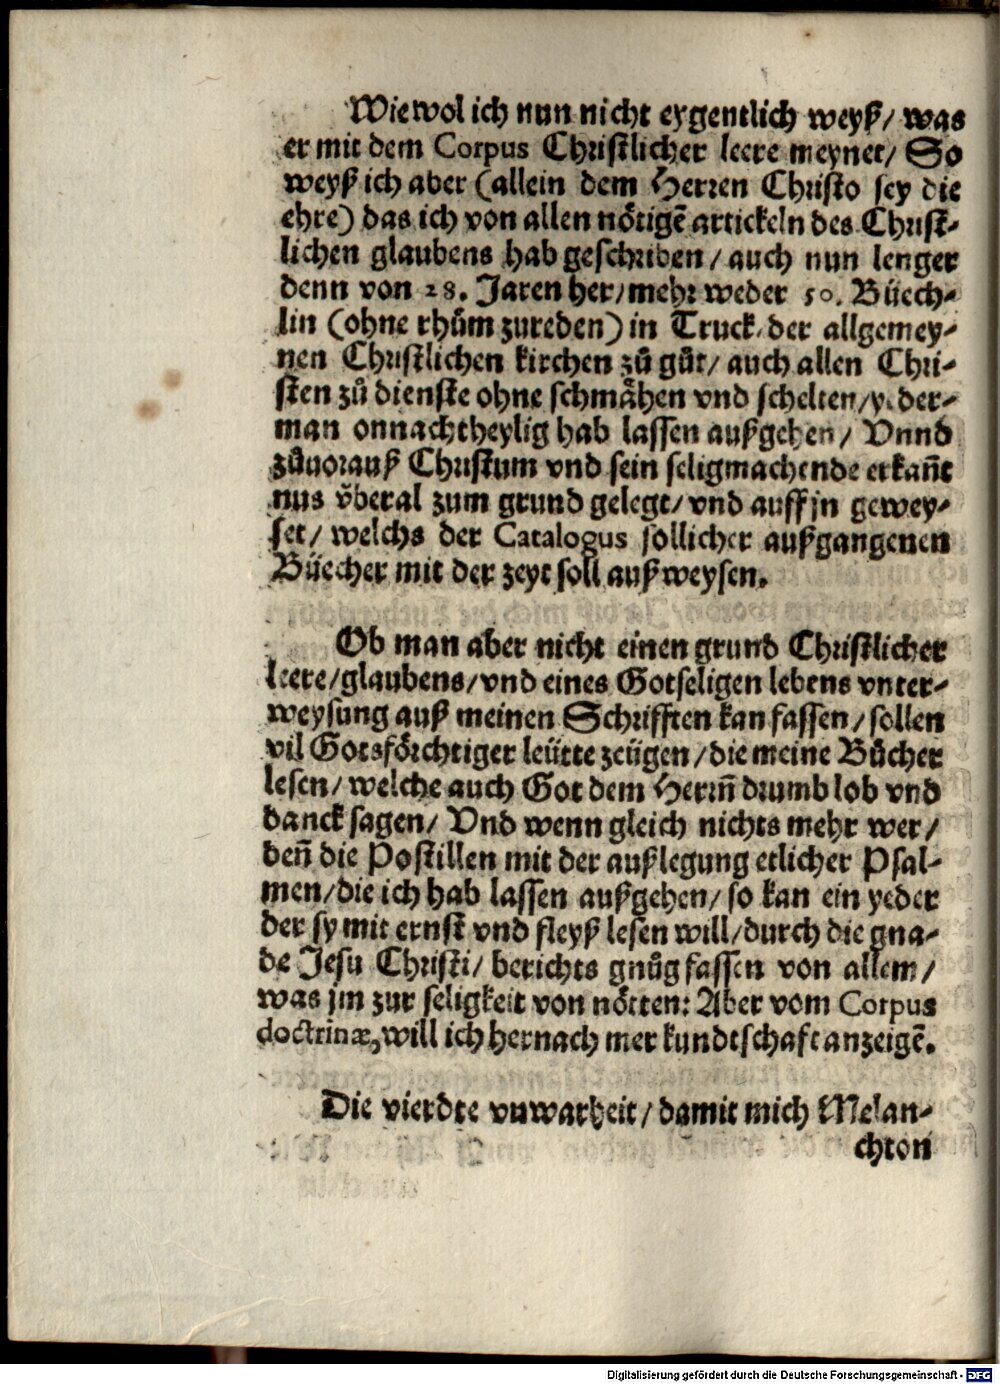 Wiewol ich nun nicht eygentlich weyß/ was
er mit dem Corpus Christlicher leere meynet/ So
weyß ich aber (allein dem Herren Christo sey die
ehre) das ich von allen nötigē artickeln des Christ-
lichen glaubens hab geschriben/ auch nun lenger
denn von 28. Jaren her/ mehr weder 50. Büech-
lin (ohne rhům zureden) in Truck/ der allgemey-
nen Christlichen kirchen zů gůt/ auch allen Chri-
sten zů dienste ohne schmähen vnd schelten/ yeder-
man onnachtheylig hab lassen außgehen/ Vnnd
zůuorauß Christum vnd sein seligmachende erkañt
nus v̈beral zum grund gelegt/ vnd auff jn gewey-
set/ welchs der Catalogus sollicher außgangenen
Büecher mit der zeyt soll außweysen.
Ob man aber nicht einen grund Christlicher
leere/ glaubens/ vnd eines Gotseligen lebens vnter-
weysung auß meinen Schrifften kan fassen/ sollen
vil Gotsförchtiger leütte zeügen/ die meine Bůcher
lesen/ welche auch Got dem Herrn̄ drumb lob vnd
danck sagen/ Vnd wenn gleich nichts mehr wer/
deñ die Postillen mit der außlegung etlicher Psal-
men/ die ich hab lassen außgehen/ so kan ein yeder
der sy mit ernst vnd fleyß lesen will/ durch die gna-
de Jesu Christi/ berichts gnůg fassen von allem/
was jm zur seligkeit von nötten: Aber vom Corpus
doctrinæ, will ich hernach mer kundtschaft anzeigē.
Die vierdte vnwarheit/ damit mich Melan-
chton
Digitalisierung gefördert durch die Deutsche Forschungsgemeinschaft - DFG